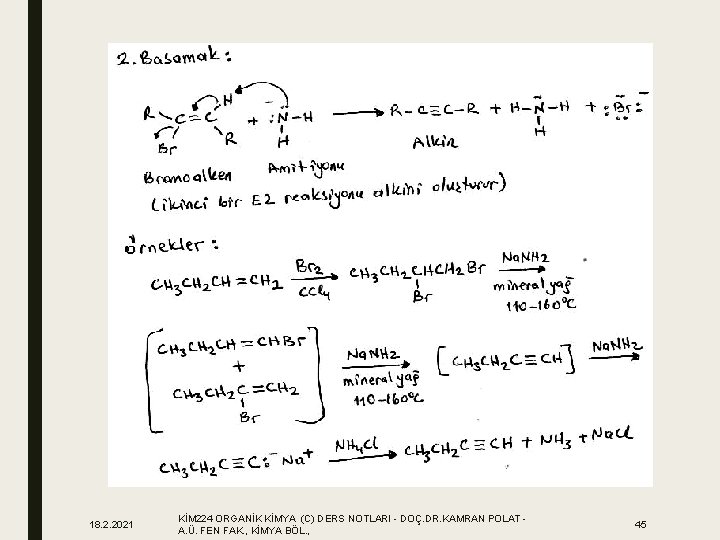 2. Basamak:
R Br C=C H R + :N̈-H H → R-C≡C-R + H-N̈-H H + :B̈r:⁻
Bromoalken Amit iyonu Alkin
(ikinci bir E2 reaksiyonu alkini oluşturur)
örnekler:
CH3CH2CH=CH2 Br2 CCl4 → CH3CH2CHCH2Br Br NaNH2 mineral yağ 110-160°C →
[CH3CH2CH=CHBr + CH3CH2C=CH2 Br] NaNH2 mineral yağ 110-160°C → [CH3CH2C≡CH] NaNH2 →
CH3CH2C≡C:⁻Na⁺ NH4Cl → CH3CH2C≡CH + NH3 + NaCl
18.2.2021
KİM224 ORGANİK KİMYA (C) DERS NOTLARI - DOÇ.DR.KAMRAN POLAT -
A.Ü. FEN FAK., KİMYA BÖL.,
45